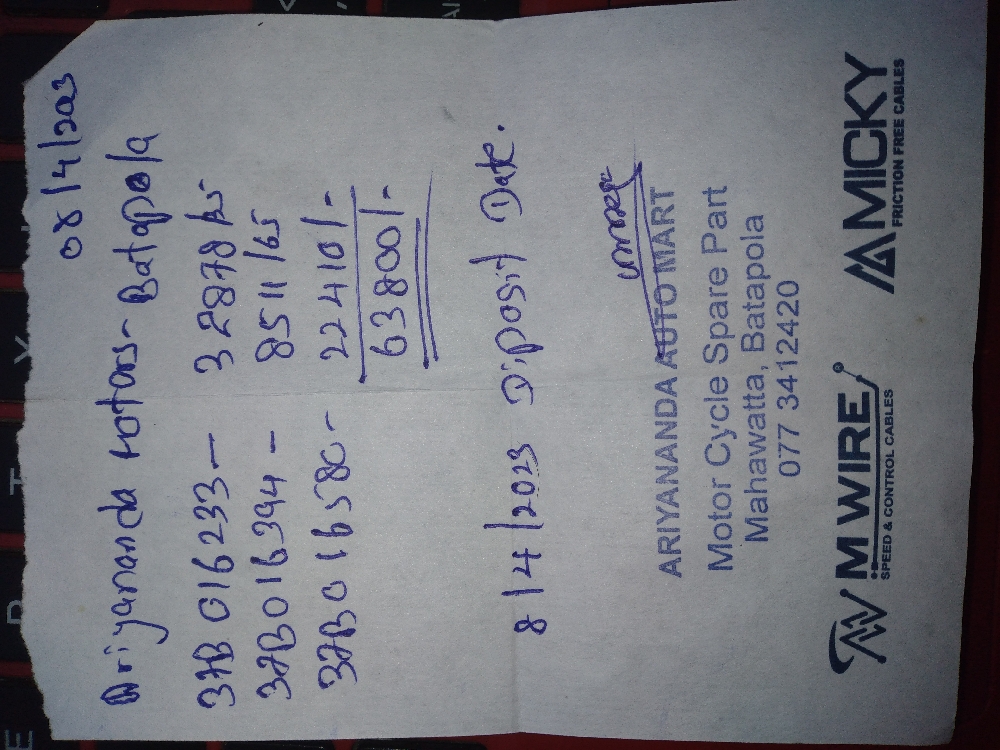 08/4/2023
Ariyananda Motors - Batapola
37B 016233 - 32878/35
37B 016394 - 8511/65
37B 016580 - 22410/-
63800/-
8/4/2023 Diposit Date.
ARIYANANDA AUTO MART
Motor Cycle Spare Part
Mahawatta, Batapola
077 3412420
M WIRE
SPEED & CONTROL CABLES
AMICKY
FRICTION FREE CABLES